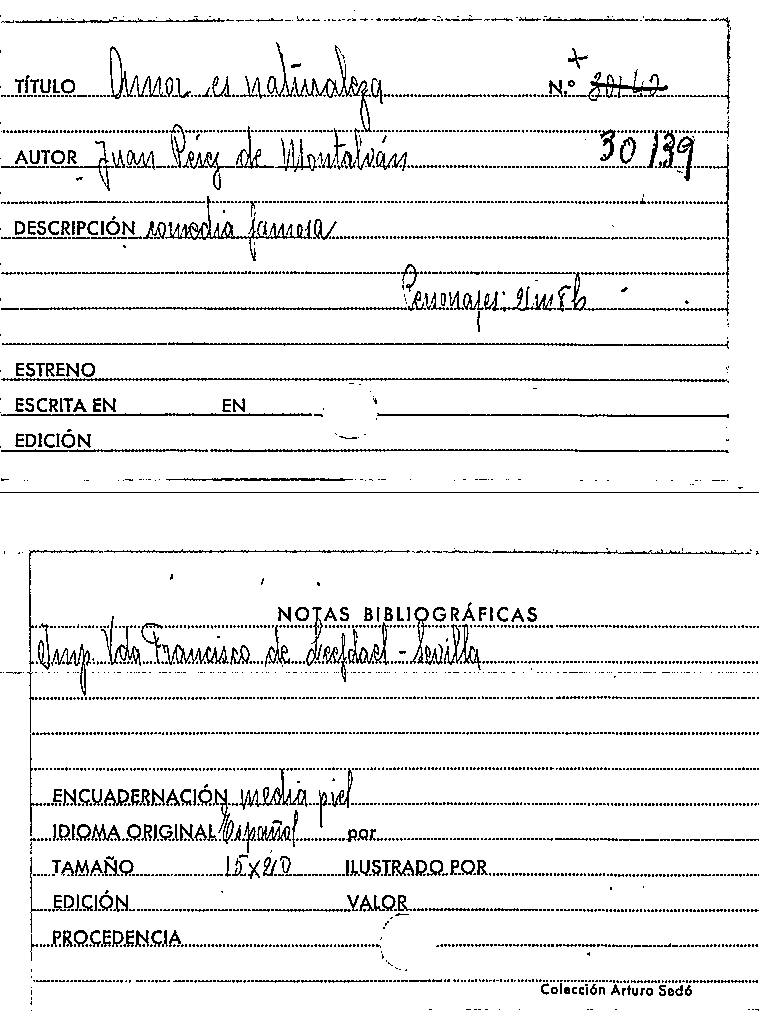 TÍTULO Amor es naturaleza N.º
AUTOR Juan Pérez de Montalván 30139
DESCRIPCIÓN comedia famosa
Personajes:
ESTRENO
ESCRITA EN EN
EDICIÓN
NOTAS BIBLIOGRÁFICAS
Imp. Vda Francisco de Leefdael - Sevilla
ENCUADERNACIÓN media piel
IDIOMA ORIGINAL Español por
TAMAÑO 15x20 ILUSTRADO POR
EDICIÓN VALOR
PROCEDENCIA
Colección Arturo Sedó